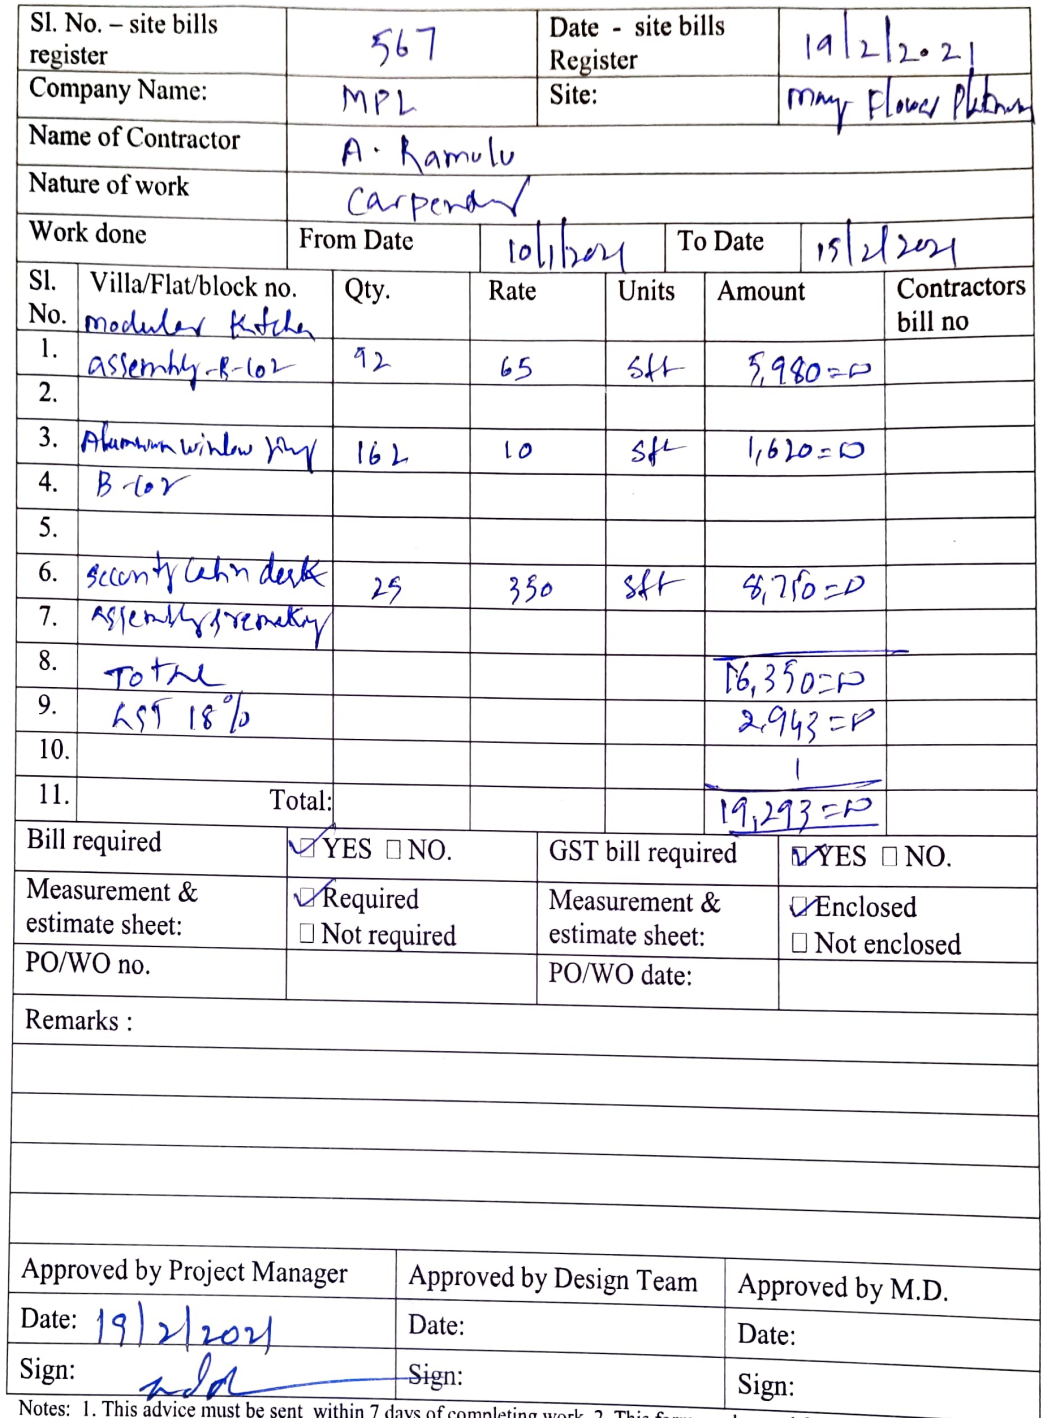 Sl. No. – site bills register 567 Date - site bills Register 19/2/2021
Company Name: MPL Site: may Flower Platinum
Name of Contractor A. Ramulu
Nature of work Carpenter
Work done From Date 10/1/2021 To Date 15/2/2021
Sl. No. Villa/Flat/block no. Qty. Rate Units Amount Contractors bill no
modular kitchen
1. assembly-B-102 92 65 sft 5,980=00
2.
3. Aluminium window 162 10 sft 1,620=00
4. B-102
5.
6. security cabin desk 25 350 sft 8,750=00
7. Assembly
8. Total 16,350=00
9. GST 18% 2,943=00
10.
11. Total: 19,293=00
Bill required ☑YES ☐NO. GST bill required ☑YES ☐NO.
Measurement & estimate sheet: ☑Required ☐Not required Measurement & estimate sheet: ☑Enclosed ☐Not enclosed
PO/WO no. PO/WO date:
Remarks :
Approved by Project Manager Approved by Design Team Approved by M.D.
Date: 19/2/2021 Date: Date:
Sign: Sign: Sign:
Notes: 1. This advice must be sent within 7 days of completing work. 2. This